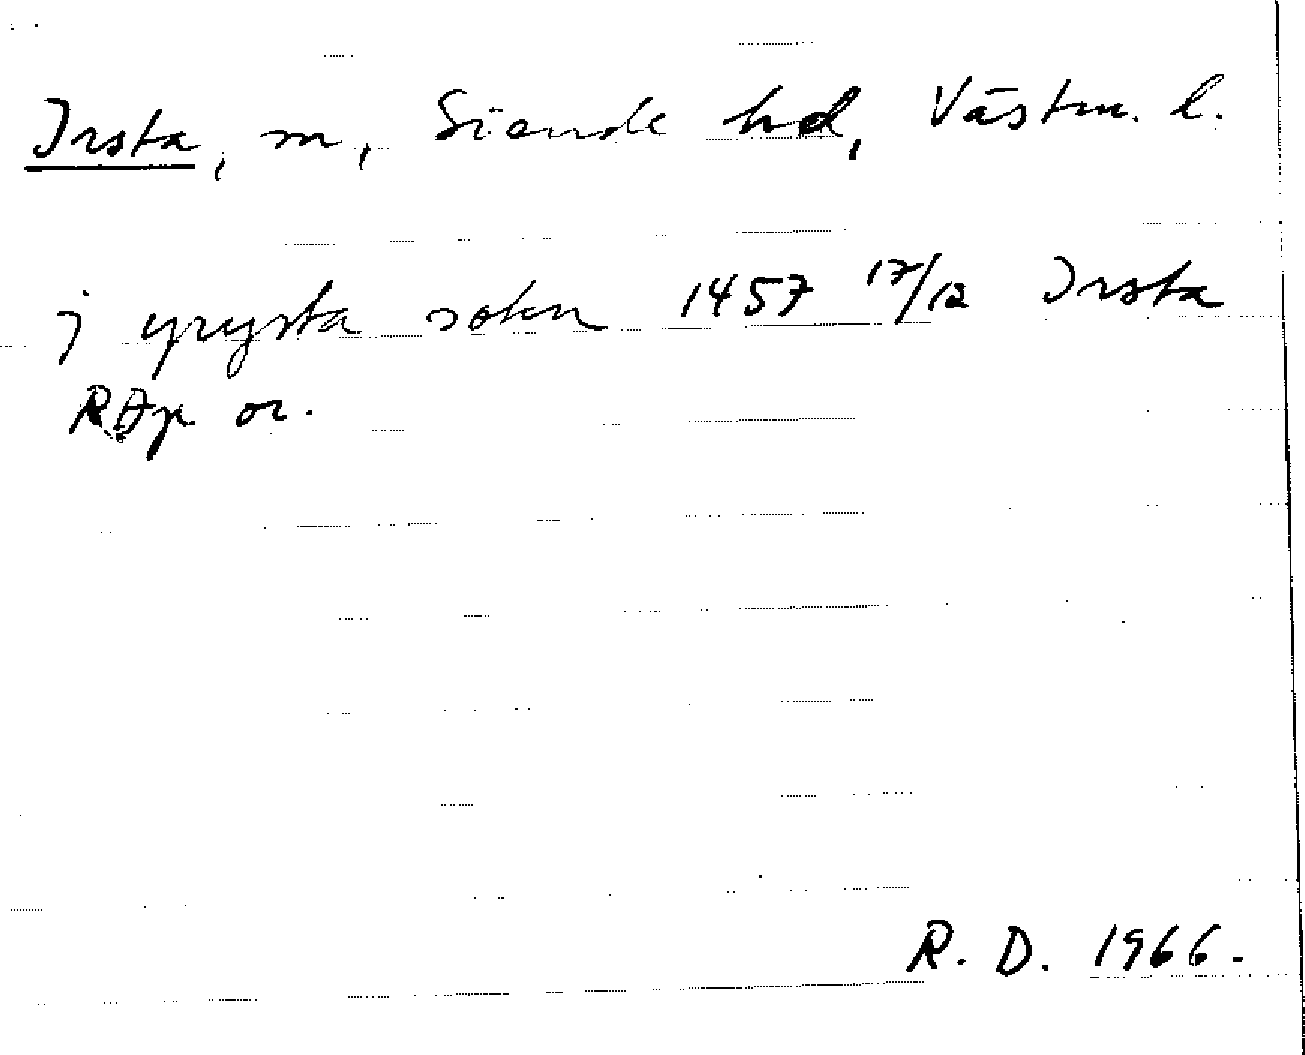 Irsta, sn, Siende hd, Västm. l.
j yrysta sokn 1457 17/12 Irsta
RAp or.
R. D. 1966.